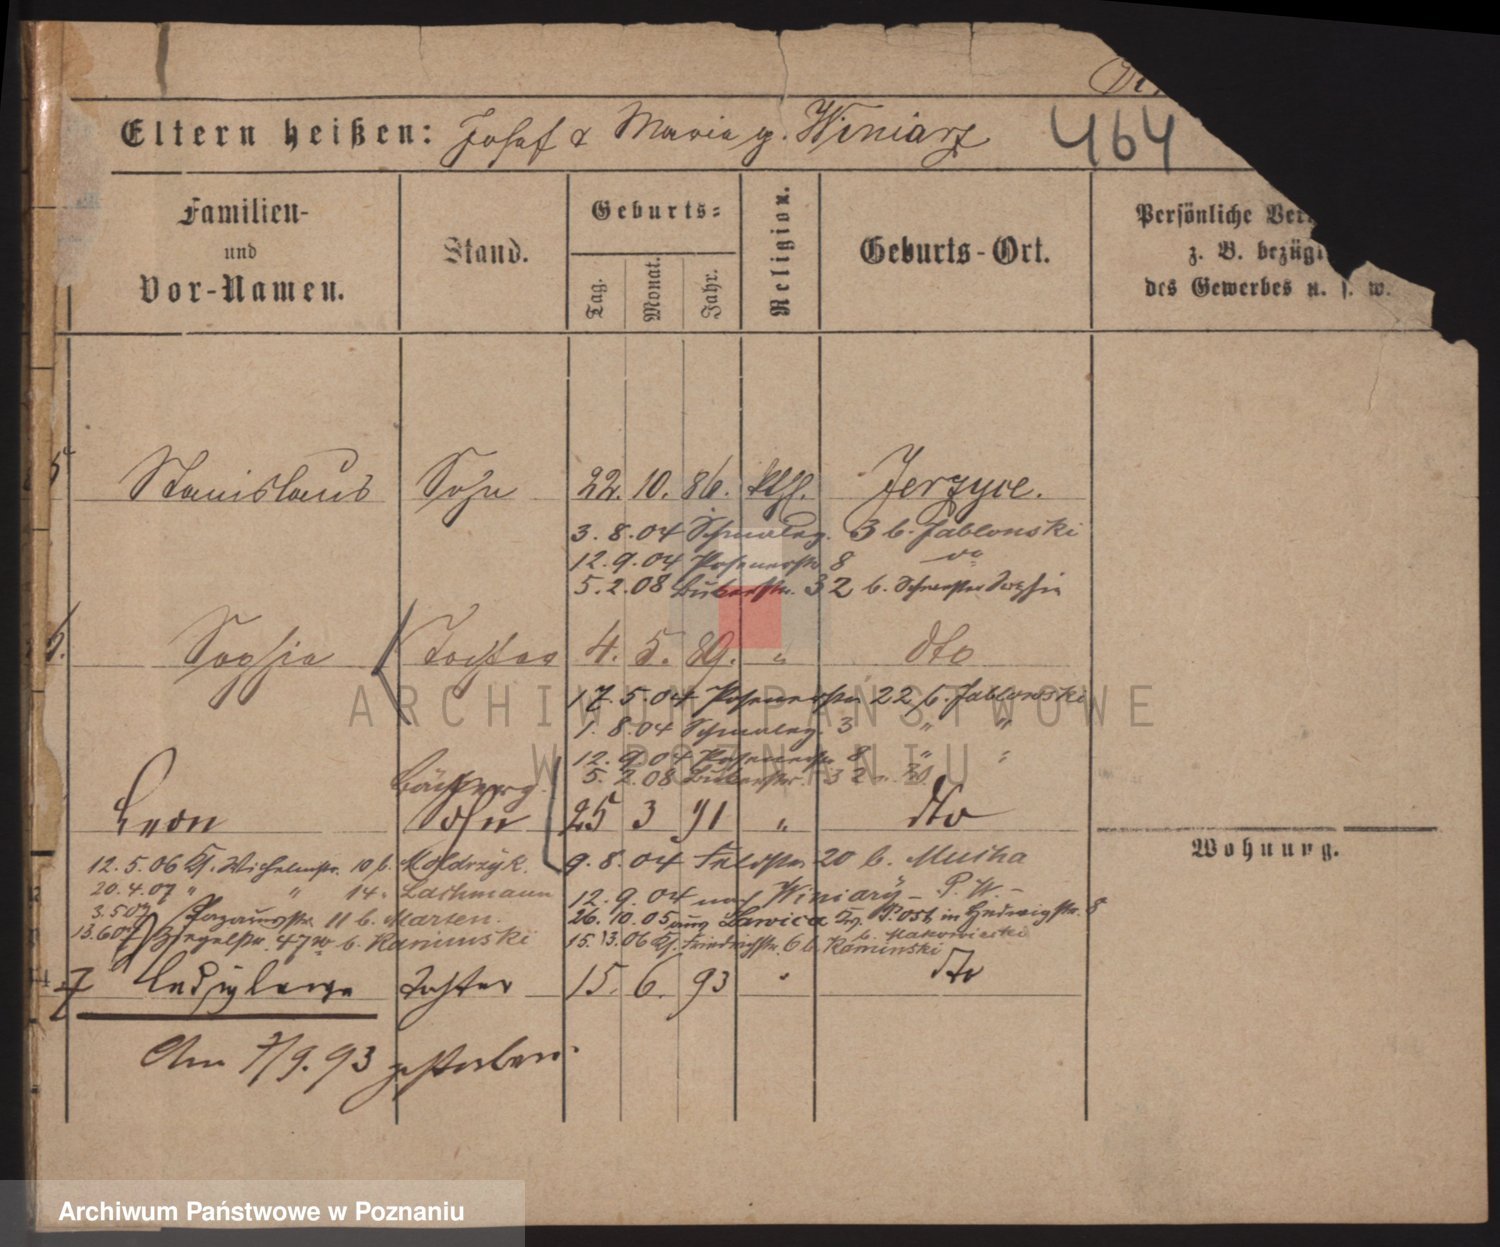 464
Eltern heißen: Josef & Maria g. Winiarz
Familien-
und
Vor-Namen.
Stand.
Geburts-
Tag.
Monat.
Jahr.
Religion.
Geburts-Ort.
Persönliche Ver
z. B. bezügl
des Gewerbes u. s. w.
5 Stanislaus Sohn 22. 10. 86. kth. Jerzyce.
3. 8. 04 3 b. Jablonski
12. 9. 04 Posenerstr 8 do
5. 2. 08 32 b.
6. Sophia Tochter 4. 5. 89. " dto
17. 5. 04 Posenerstr 22 b. Jablonski
1. 8. 04 3 " "
12. 9. 04 Posenerstr 8 " "
5. 2. 08 32
Leon Sohn 25 3 91 " dto
12. 5. 06 Wilhelmstr. 10 b. Moldrzyk.
9. 8. 04 Feldstr 20 b. Musha
20. 4. 07 " " 14. Lachmann
12. 9. 04 nach Winiary P. W.
3. 5 07 11 b. Marten.
26. 10. 05 aus Lawica Post in Hedwigstr. 8
b. Makowiecki
13. 6 07 Ziegelstr. 47 b. Kaminski
15. 3. 06 Friedrichstr. 6 b. Kaminski
7 Ludislawa Tochter 15. 6. 93 " dto
Am 7/9. 93 gestorben.
Wohnung.
ARCHIWUM PAŃSTWOWE
W POZNANIU
Archiwum Państwowe w Poznaniu